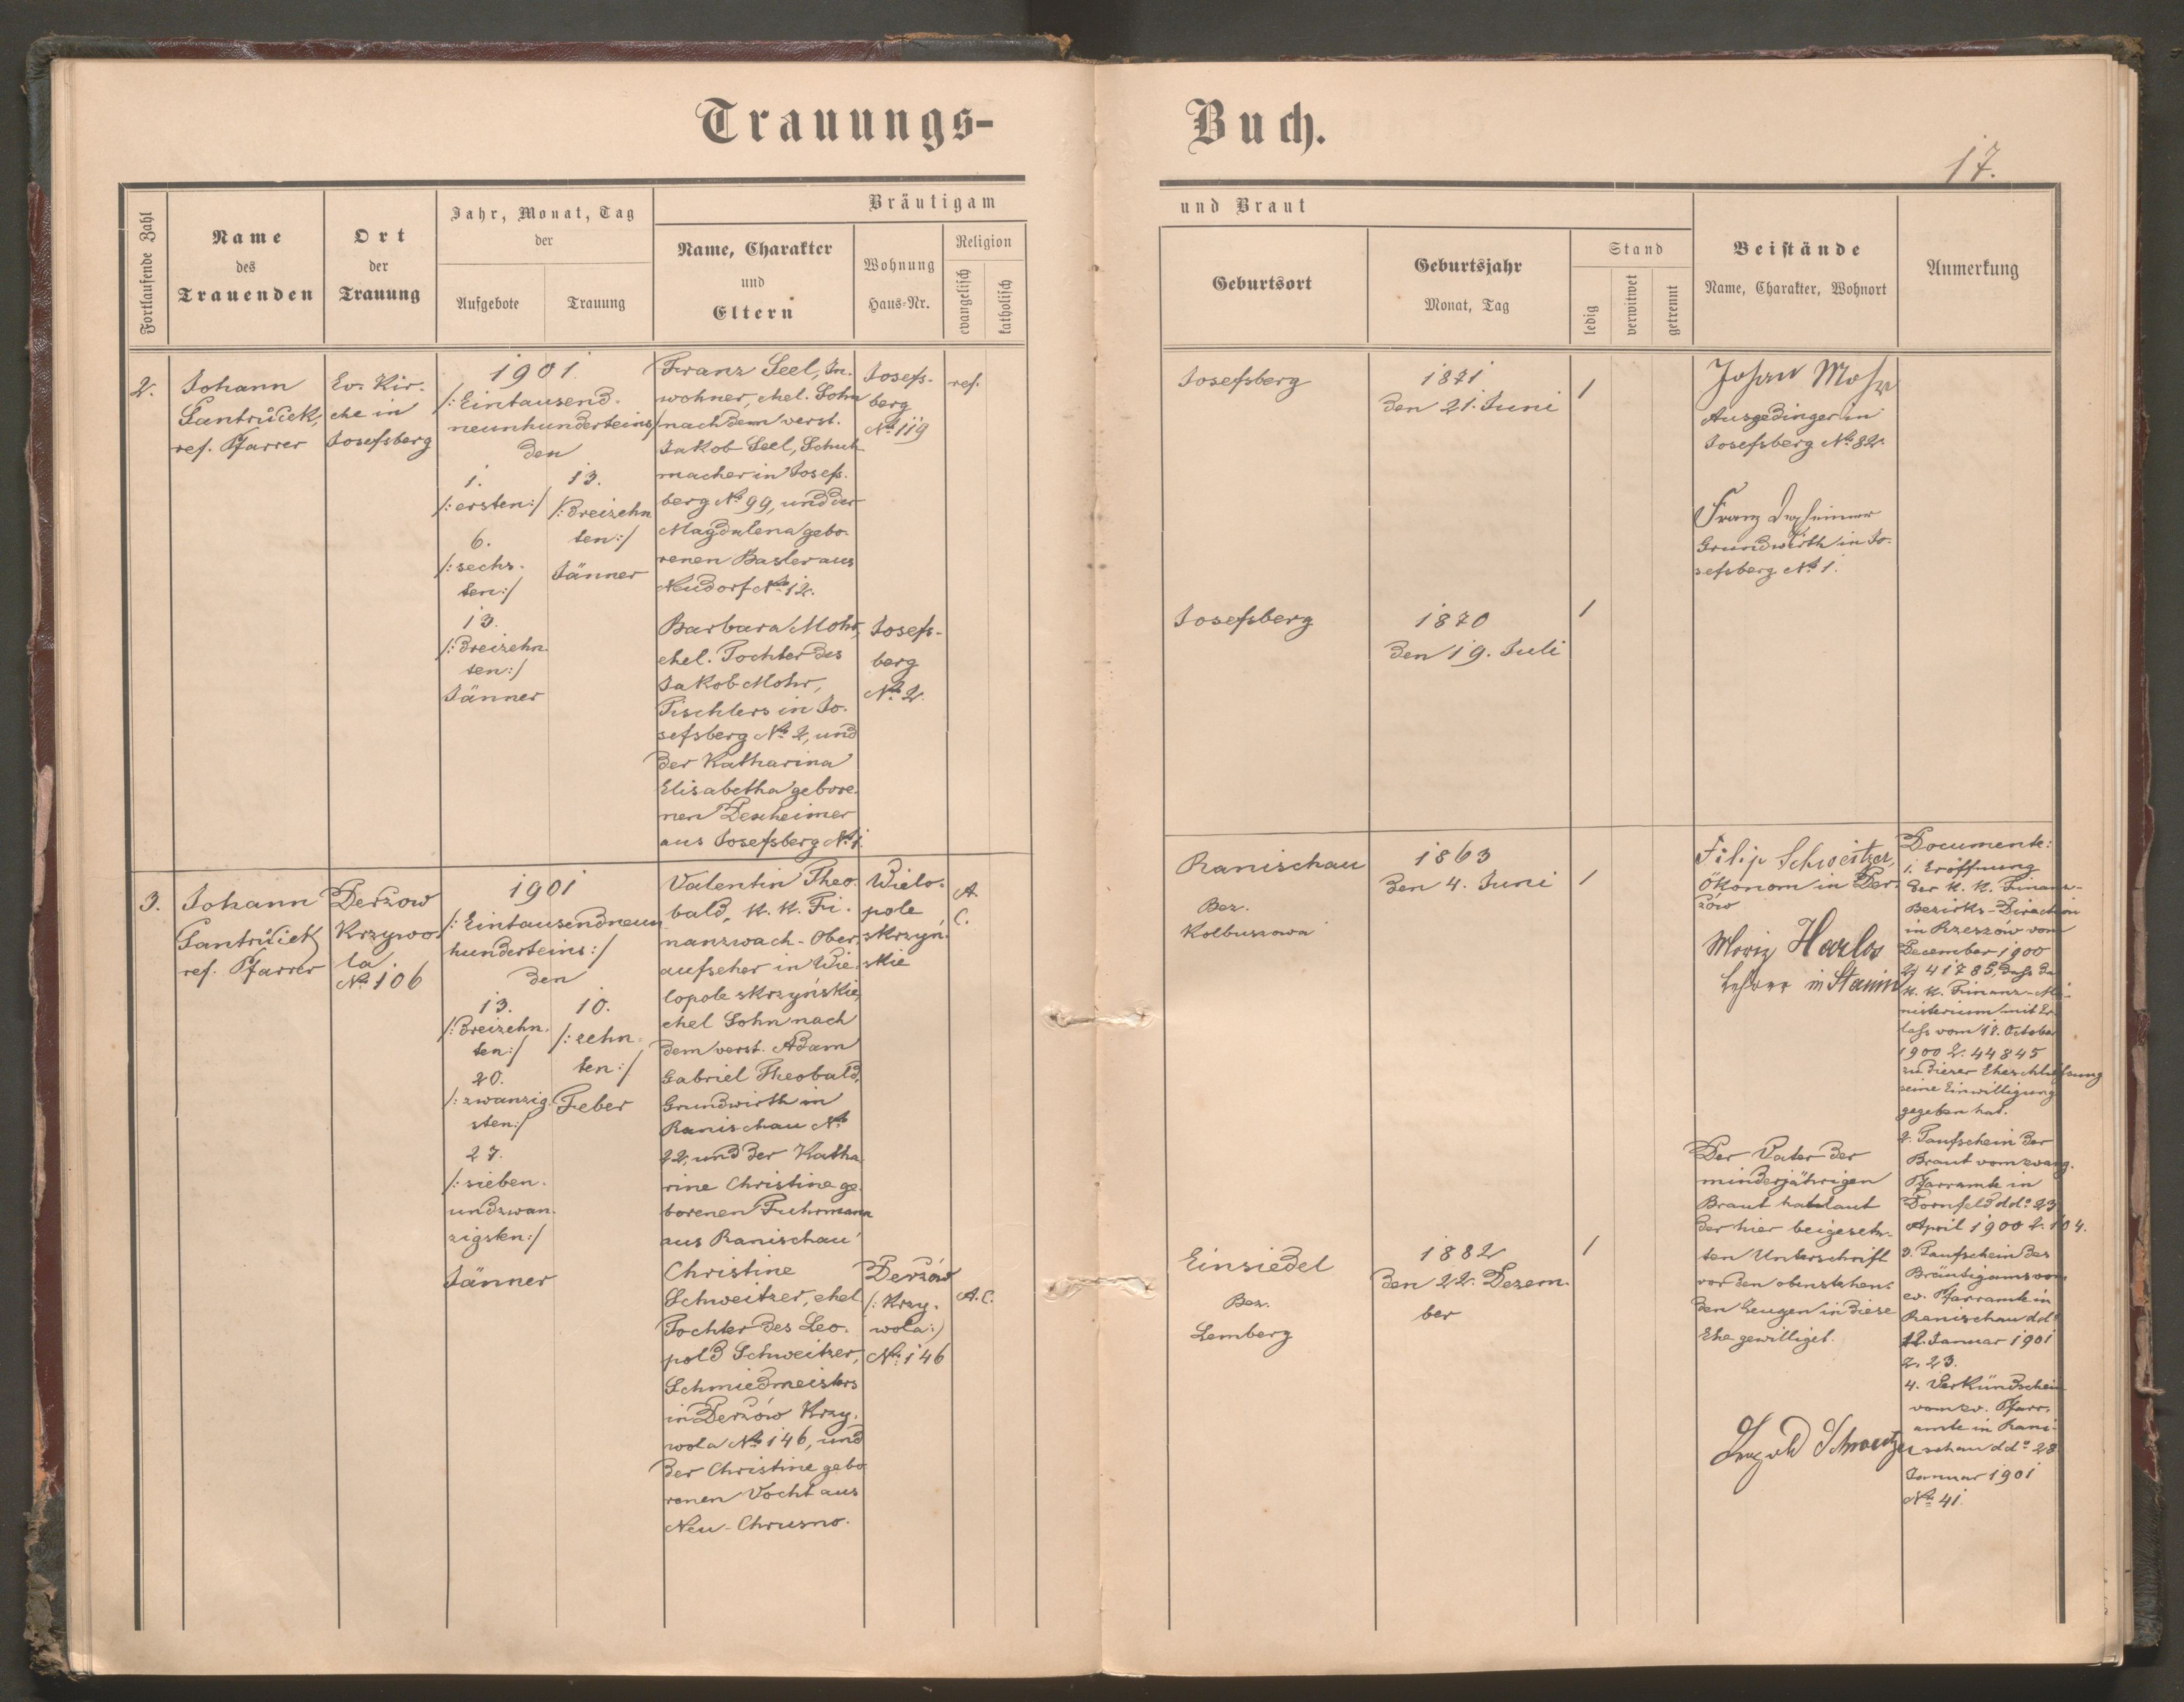 Trauungs-
Buch.
17.
Fortlaufende Zahl
Name
des
Trauenden
Ort
der
Trauung
Jahr, Monat, Tag
der
Aufgebote
Trauung
Bräutigam
Name, Charakter
und
Eltern
Wohnung
Haus-Nr.
Religion
evangelisch
katholisch
und Braut
Geburtsort
Geburtsjahr
Monat, Tag
Stand
ledig
verwitwet
getrennt
Beistände
Name, Charakter, Wohnort
Anmerkung
2.
Johann
Santrůček,
ref. Pfarrer
Ev. Kir-
che in
Josefsberg
1901
/: Eintausend-
neunhunderteins/
den
1.
/: ersten :/
6.
/: sechs-
ten :/
13.
/: dreizehn-
ten :/
Jänner
13.
/: dreizehn
ten :/
Jänner
Franz Seel, In-
wohner, ehel. Sohn
nach dem verst.
Jakob Seel, Schuh
macher in Josefs-
berg No 99, und der
Magdalena gebo-
renen Basler aus
Neudorf No 12.
Josefs-
berg
No 119
ref.
Josefsberg
1871
den 21. Juni
1
Johan Mohr
Ausgedinger in
Josefsberg No 82.
Franz
Grundwirth in Jo-
sefsberg No 1.
Barbara Mohr,
ehel. Tochter des
Jakob Mohr,
Tischlers in Jo-
sefsberg No 2, und
der Katharina
Elisabetha gebore-
nen Dexheimer
aus Josefsberg No 1.
Josefs-
berg
No 2.
Josefsberg
1870
den 19. Juli
1
3.
Johann
Santrůček
ref. Pfarrer
Derzow
Krzywo-
la
No 106
1901
/: Eintausendneun
hunderteins :/
den
13.
/: dreizehn-
ten :/
20.
/: zwanzig-
sten :/
27.
/: sieben-
undzwan-
zigsten :/
Jänner
10.
/: zehn-
ten :/
Feber
Valentin Theo-
bald, K. K. Fi-
nanzwach-Ober-
aufseher in Wie-
lopole skrzyńskie,
ehel Sohn nach
dem verst. Adam
Gabriel Theobald,
Grundwirth in
Ranischau No
22, und der Katha-
rine Christine ge-
borenen Fuhrmann
aus Ranischau
Wielo-
pole
skrzyń-
skie
A.
C.
Ranischau
Bez.
Kolbuszowa
1863
den 4. Juni
1
Filip Schweitzer,
Ökonom in Der-
zów
Moriz Harlos
Lehrer in Stanin
Documente:
1. Eröffnung
der K. K. Finanz-
Bezirks-Direction
in Rzeszów vom
December 1900
Z. 41785, dass da
K. K. Finanz-Mi-
nisterium mit Er-
lass vom 18. October
1900 Z. 44845
zu dieser Eheschliessung
seine Einwilligung
gegeben hat.
2. Taufschein der
Braut vom evang.
Pfarramte in
Dornfeld ddo 23
April 1900 Z. 104.
3. Taufschein des
Bräutigams vom
ev. Pfarramte in
Ranischau ddo
12. Januar 1901
Z. 23.
4. Verkündschein
vom ev. Pfarr-
amte in Rani-
schau ddo 28
Januar 1901
No 41.
Christine
Schweitzer, ehel
Tochter des Leo-
pold Schweitzer,
Schmiedmeisters
in Derzów Krzy-
wola No 146, und
der Christine gebo-
renen Vocht aus
Neu-Chrusno.
Derzów
/: Krzy-
wola :)
No 146
A. C.
Einsiedel
Bez.
Lemberg
1882
den 22. Dezem-
ber
1
Der Vater der
minderjährigen
Braut hat laut
der hier beigesetz-
ten Unterschrift
vor den obenstehen-
den Zeugen in diese
Ehe gewilliget.
Leopold Schweitzer